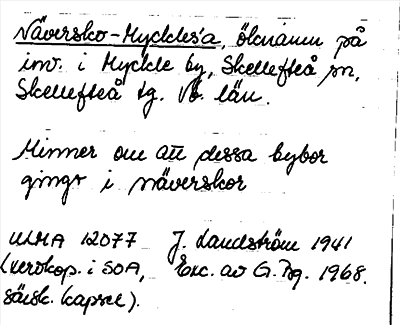 Näversko-Mycklesa, öknamn på
inv. i Myckle by, Skellefteå sn,
Skellefteå tg. Vb. län.
Minner om att dessa bybor
gingo i näverskor
ULMA 12077 J. Landström 1941
(xerokop. i SOA, Exc. av G. Pg. 1968.
särsk. kapsel).